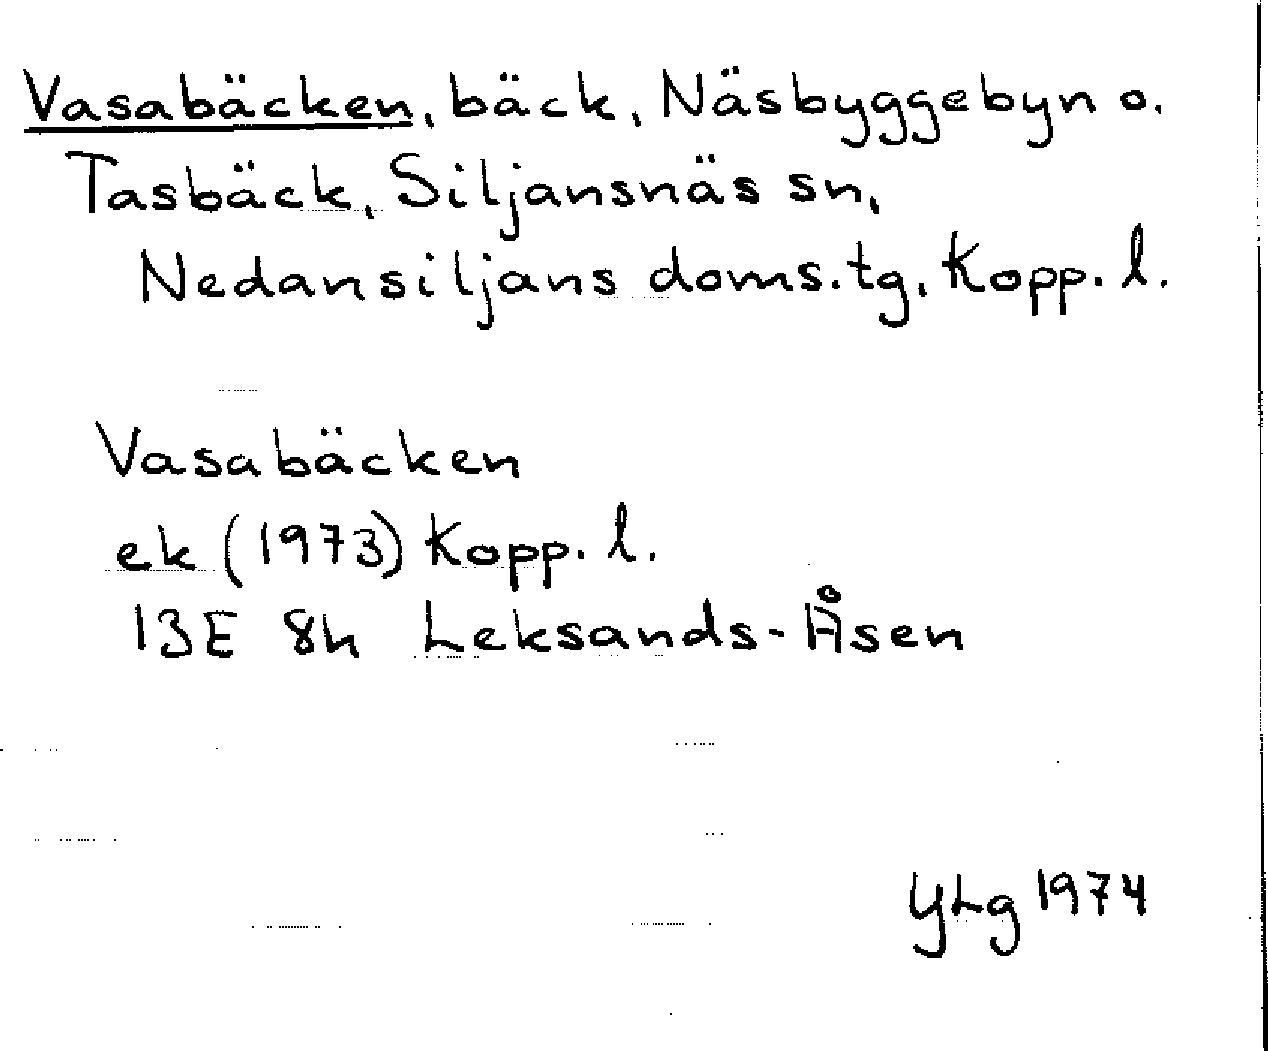 Vasabäcken, bäck, Näsbyggebyn o.
Tasbäck, Siljansnäs sn,
Nedansiljans doms.tg, Kopp. l.
Vasabäcken
ek (1973) Kopp. l.
13E 8h Leksands-Åsen
YLg 1974